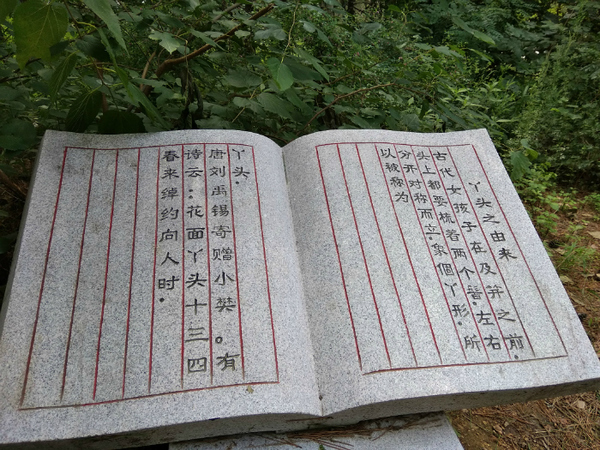 丫头之由来
古代女孩子在及笄之前.
头上都要梳着两个髻.左右
分开对称而立.象個丫形.所
以被称为
丫头.
唐刘禹锡寄赠小樊。有
诗云:花面丫头十三四
春来绰约向人时.